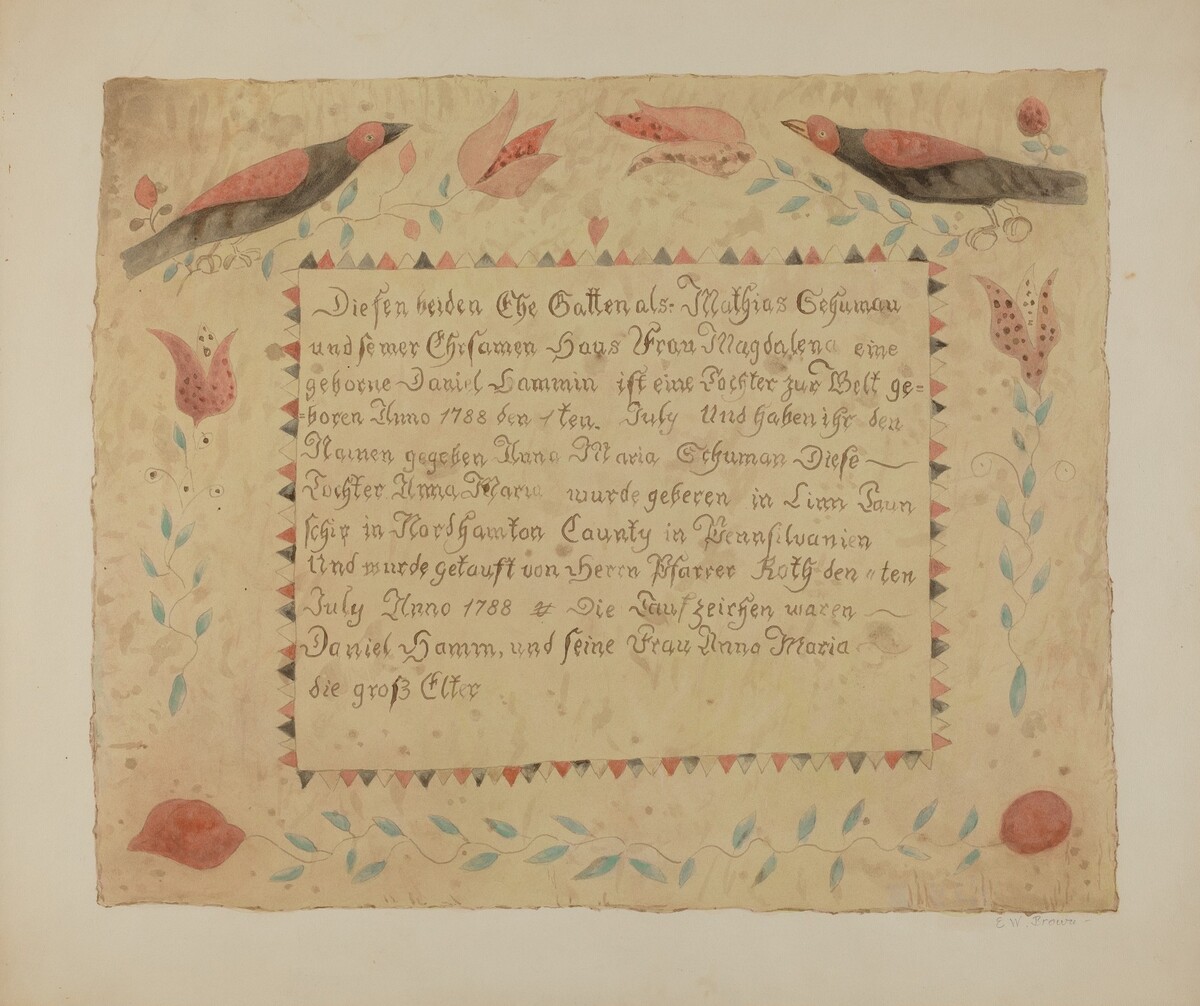 Diesen beiden Ehe Gatten als: Mathias Schuman
und seiner Ehrsamen Haus Frau Magdalena eine
geborne Daniel Hammin ist eine Tochter zur Welt ge=
=boren Anno 1788 den 1ten. July Und haben ihr den
Namen gegeben Anna Maria Schuman Diese
Tochter Anna Maria wurde geberen in Linn Taun
schip in Nordhamton Caunty in Pennsilvanien
Und wurde getauft von Herrn Pfarrer Roth den ten
July Anno 1788 Die Taufzeichen waren
Daniel Hamm, und seine Frau Anno Maria
die groß Elter
E W. Brown